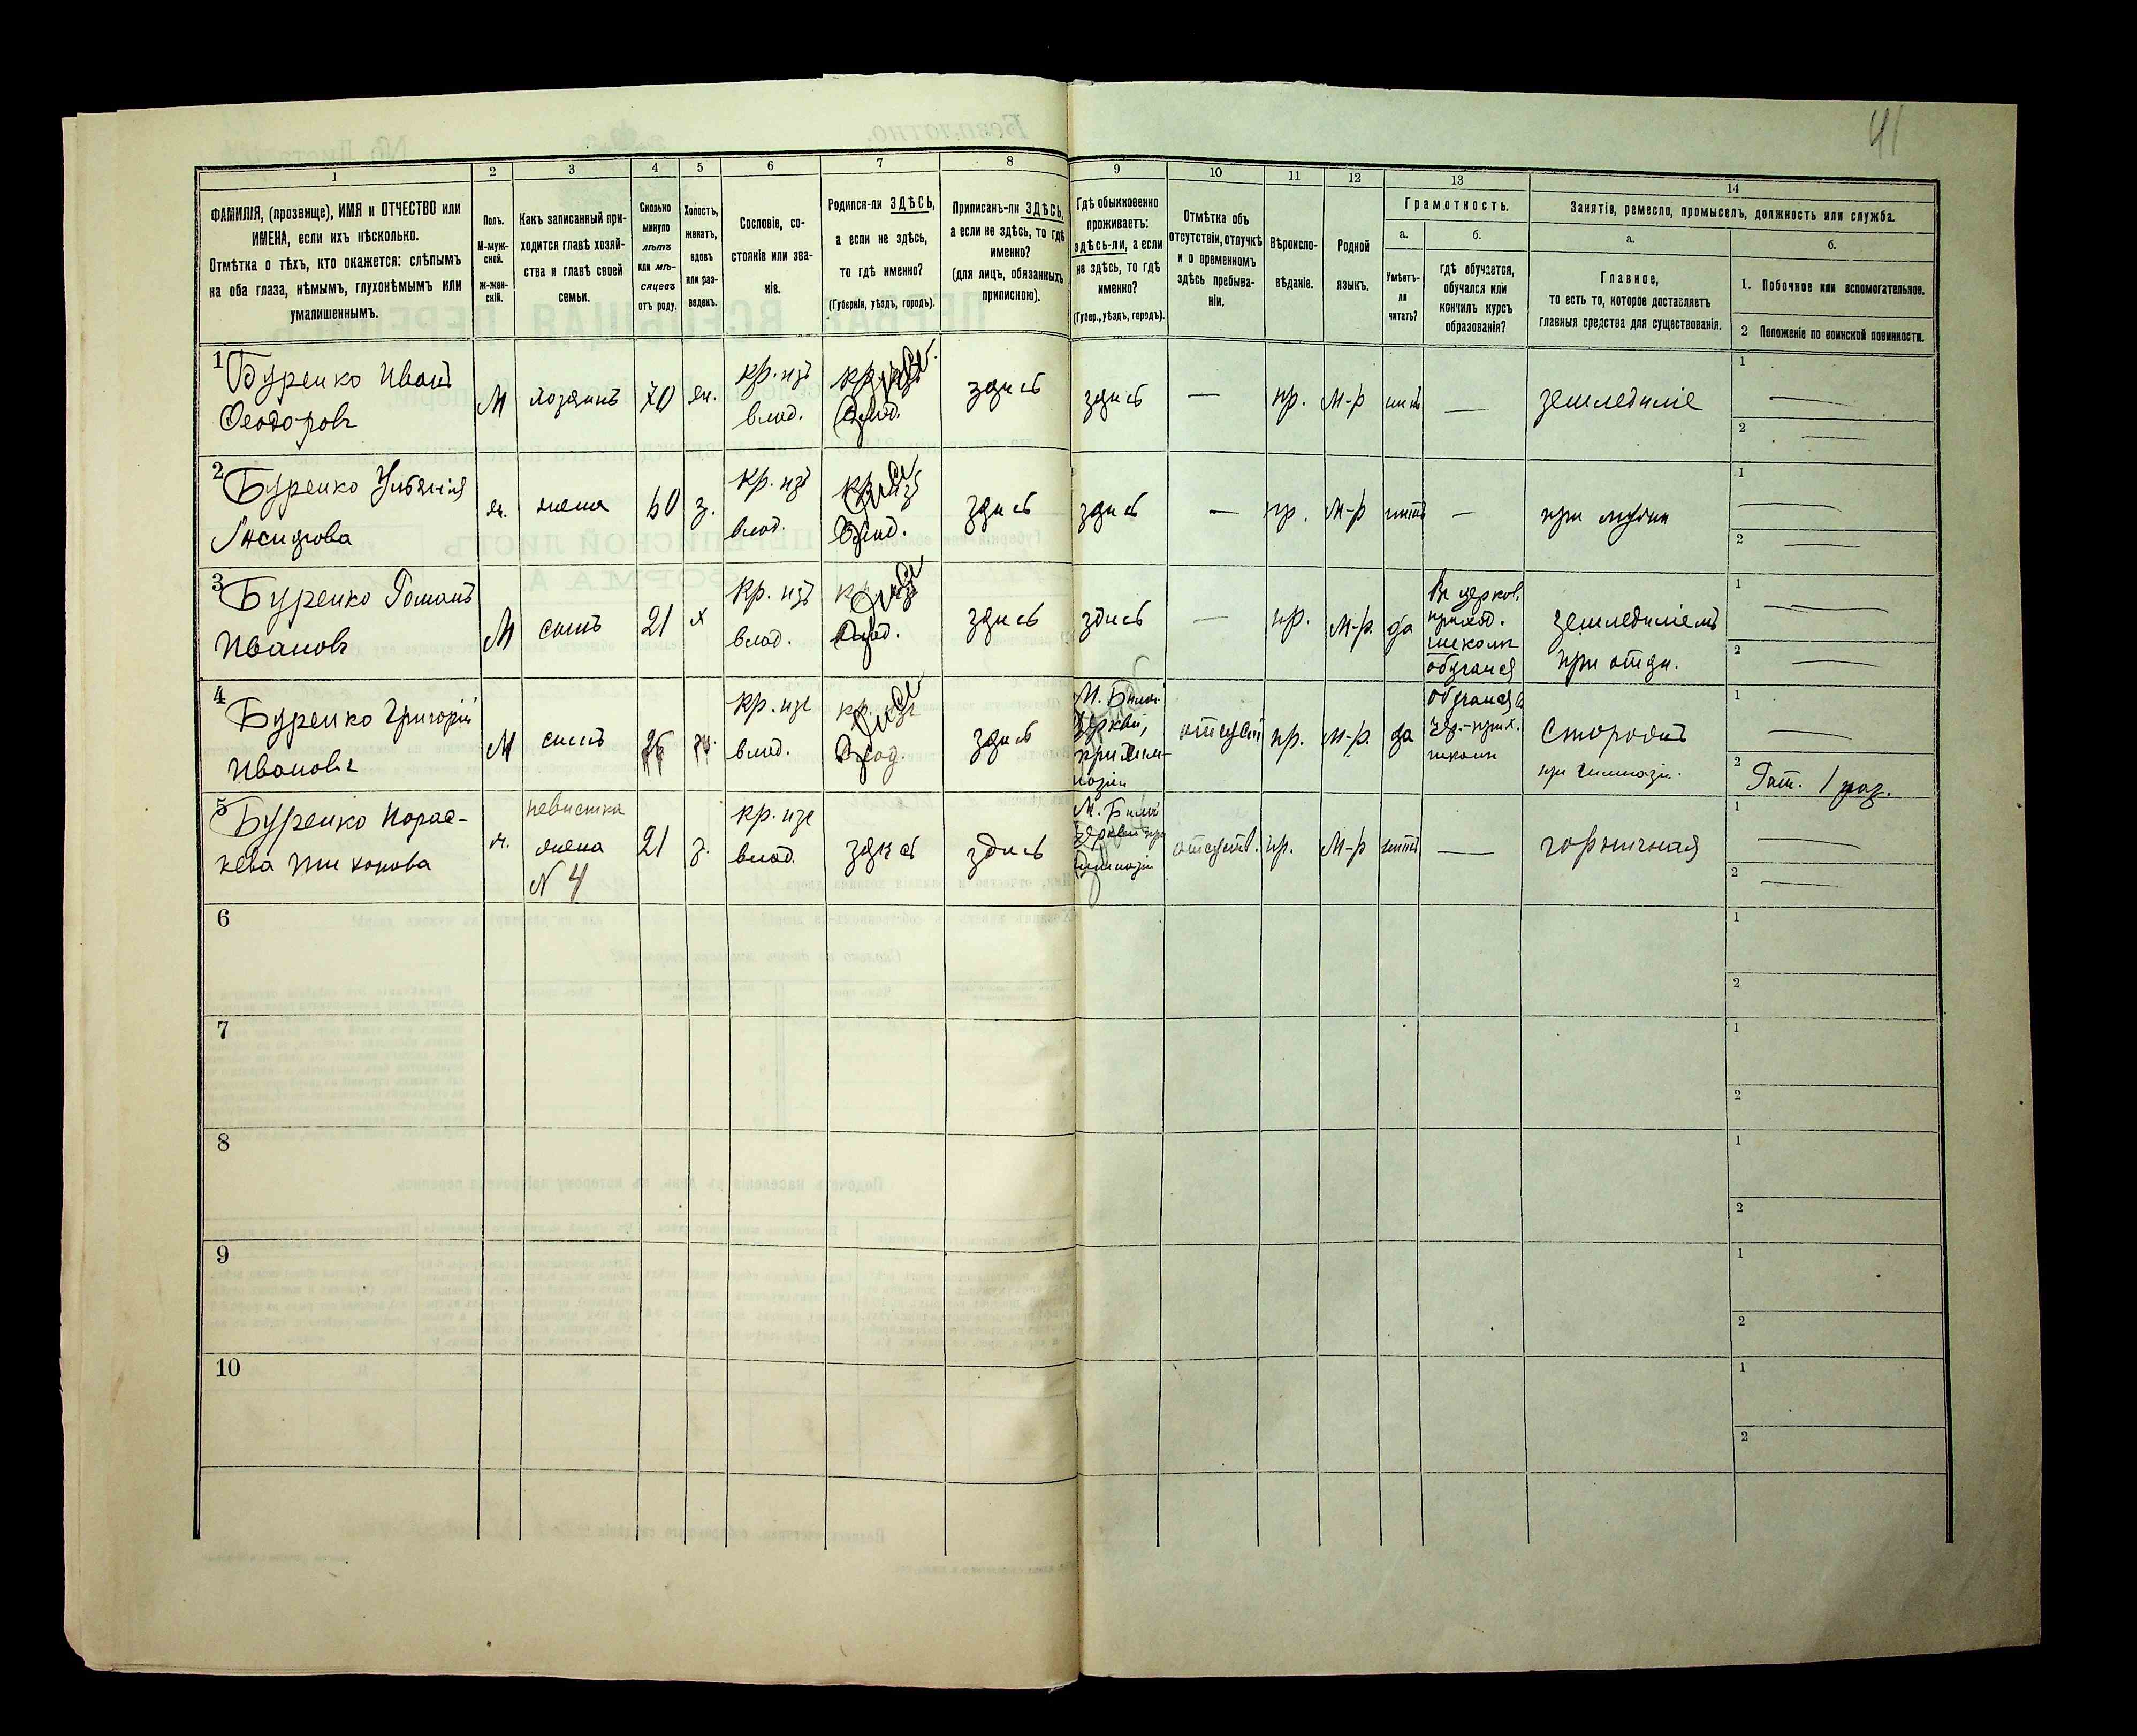 41
1
2
3
4
5
6
7
8
9
10
11
12
13
14
ФАМИЛІЯ, (прозвище), ИМЯ и ОТЧЕСТВО или
ИМЕНА, если ихъ нѣсколько.
Отмѣтка о тѣхъ, кто окажется: слѣпымъ
на оба глаза, нѣмымъ, глухонѣмымъ или
умалишеннымъ.
Полъ.
М-муж-
ской.
Ж-жен-
скій.
Какъ записанный при-
ходится главѣ хозяй-
ства и главѣ своей
семьи.
Сколько
минуло
лѣтъ
или мѣ-
сяцевъ
отъ роду.
Холостъ,
женатъ,
вдовъ
или раз-
веденъ.
Сословіе, со-
стояніе или зва-
ніе.
Родился-ли ЗДѢСЬ,
а если не здѣсь,
то гдѣ именно?
(Губернія, уѣздъ, городъ).
Приписанъ-ли ЗДѢСЬ,
а если не здѣсь, то гдѣ
именно?
(для лицъ, обязанныхъ
припискою).
Гдѣ обыкновенно
проживаетъ:
здѣсь-ли, а если
не здѣсь, то гдѣ
именно?
(Губер., уѣздъ, городъ).
Отмѣтка объ
отсутствіи, отлучкѣ
и о временномъ
здѣсь пребыва-
ніи.
Вѣроиспо-
вѣданіе.
Родной
языкъ.
Грамотность.
а.
Умѣетъ-
ли
читать?
б.
гдѣ обучается,
обучался или
кончилъ курсъ
образованія?
Занятіе, ремесло, промыселъ, должность или служба.
а.
Главное,
то есть то, которое доставляетъ
главныя средства для существованія.
б.
1. Побочное или вспомогательное.
2 Положеніе по воинской повинности.
1
Буренко Иванъ
Феодоровъ
М
хозяинъ
70
жн.
кр. изъ
влад.
здѣсь
здѣсь
—
пр.
М-р
нѣтъ
—
земледѣліе
1 —
2 —
2
Буренко Ульянія
жн.
жена
60
з.
кр. изъ
влад.
здѣсь
здѣсь
—
пр.
М-р
нѣтъ
—
при мужѣ
1 —
2 —
3
Буренко Романъ
Ивановъ
М
сынъ
21
х
кр. изъ
влад.
здѣсь
здѣсь
—
пр.
М-р.
да
Въ церков.
приход.
школѣ
обучался
земледѣліемъ
при отцѣ.
1 —
2 —
4
Буренко Григорій
Ивановъ
М
сынъ
кр. изъ
влад.
здѣсь
М. Бѣлой
Церкви,
при Гим-
назіи
отсутст
пр.
М-р.
да
обучался въ
цер.-прих.
школѣ
Сторожъ
при Гимназіи.
1 —
2 Рат. 1 раз.
5
Буренко Парас-
кева Тихонова
ж.
невистка
жена
N 4
21
з.
кр. изъ
влад.
здѣсь
здѣсь
М. Бѣлой
Церкви при
Гимназіи
отсутств.
пр.
М-р
нѣтъ
—
горничная
1 —
2 —
6
1
2
7
1
2
8
1
2
9
1
2
10
1
2